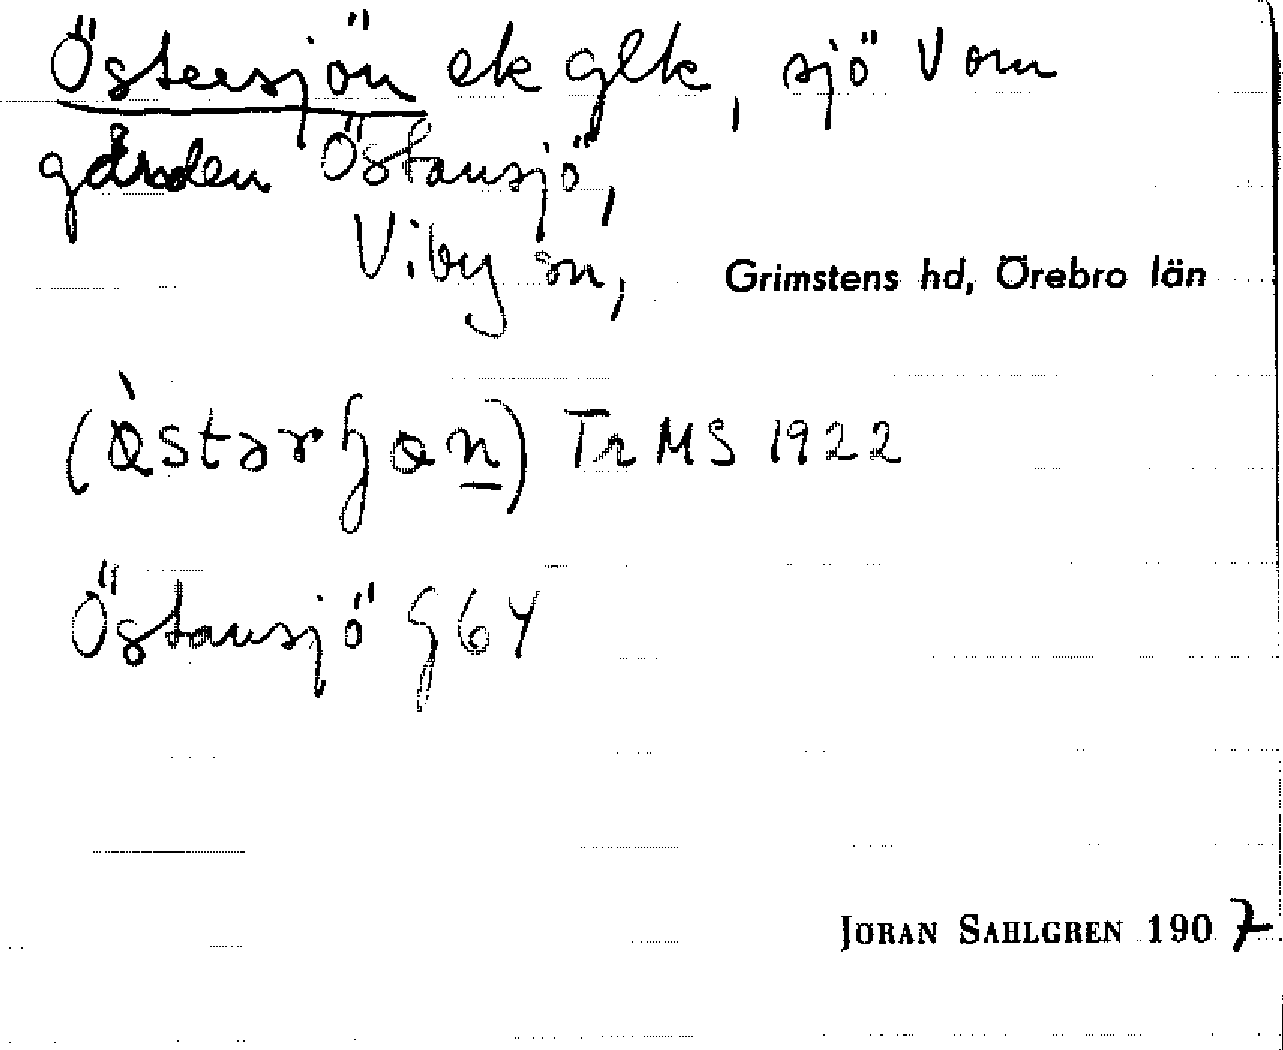 Östersjön ek glk, sjö V om
gården Östansjö,
Viby sn, Grimstens hd, Örebro län
TrMS 1922
Östansjö G64
JÖRAN SAHLGREN 1907